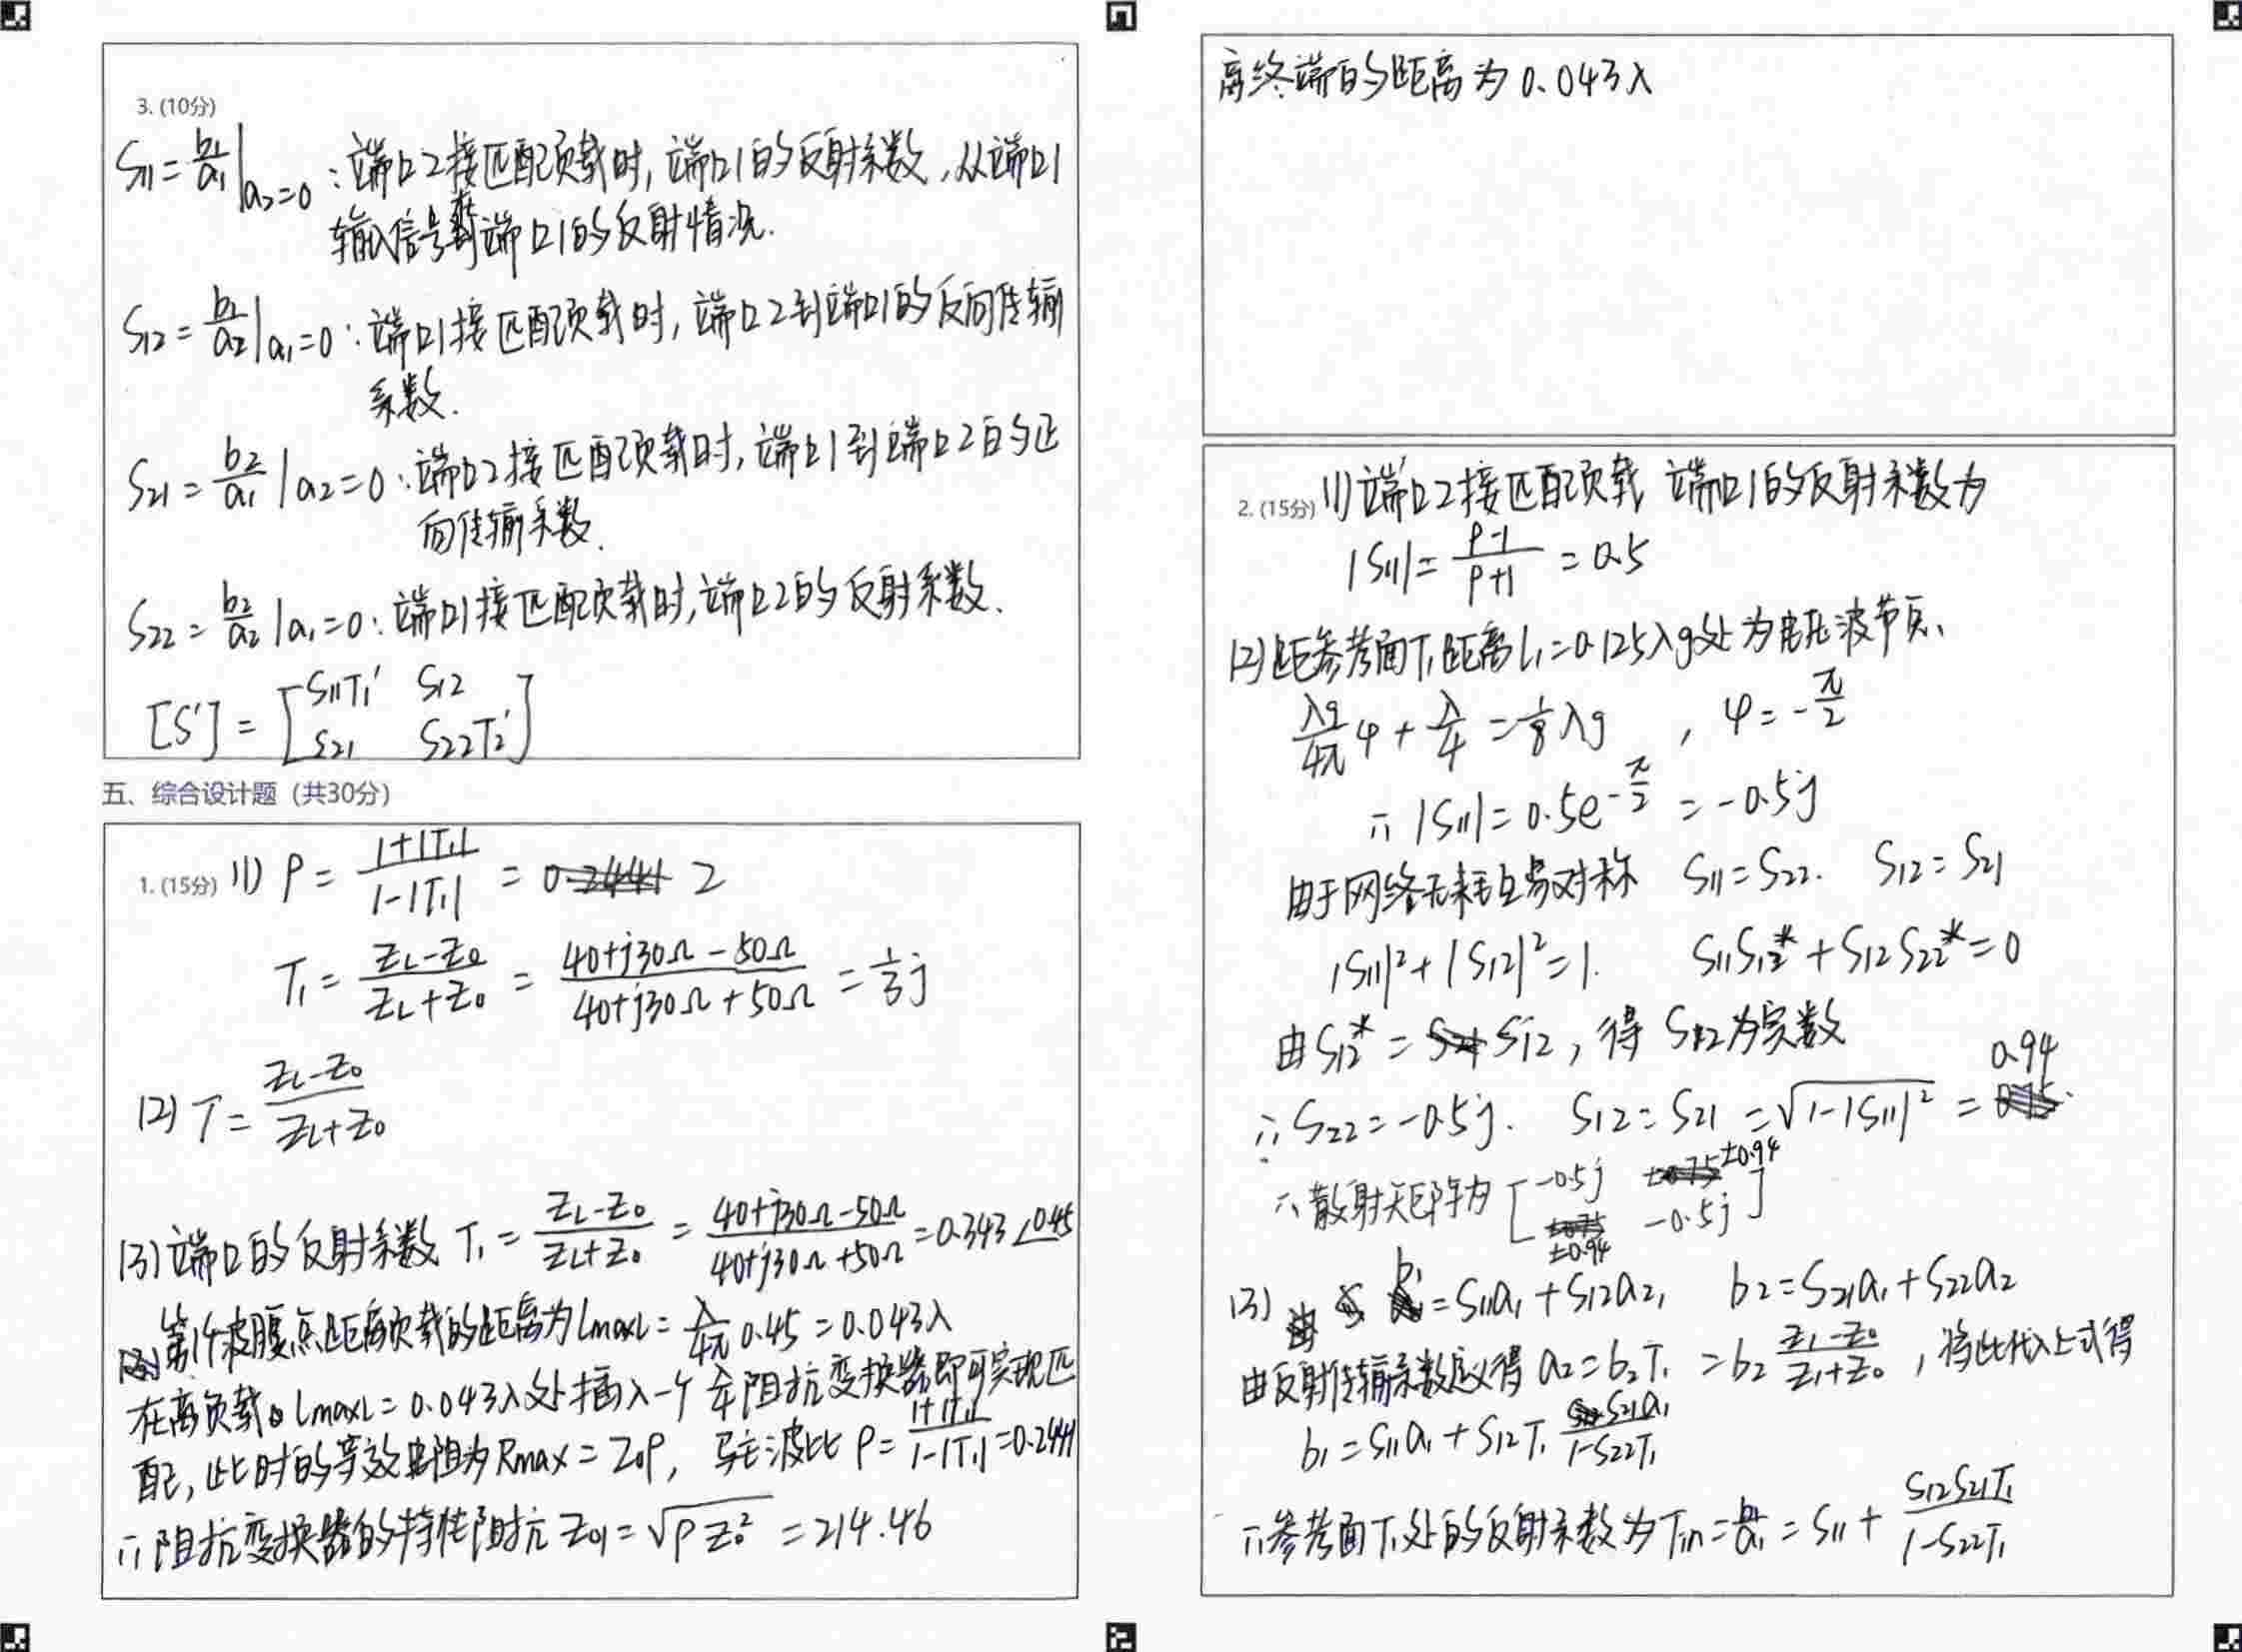 3. (10分)
S11 = b1/a1 |a2=0 : 端口2接匹配负载时, 端口1的反射系数, 从端口1
输入信号到端口1的反射情况.
S12 = b1/a2 |a1=0 : 端口1接匹配负载时, 端口2到端口1的反向传输
系数.
S21 = b2/a1 |a2=0 : 端口2接匹配负载时, 端口1到端口2的正
向传输系数.
S22 = b2/a2 |a1=0 : 端口1接匹配负载时, 端口2的反射系数.
[S'] = [S11T1' S12
S21 S22T2']
五、综合设计题（共30分）
1. (15分) (1) ρ = (1+|T1|)/(1-|T1|) = 2
T1 = (ZL-Z0)/(ZL+Z0) = (40+j30Ω-50Ω)/(40+j30Ω+50Ω) = 1/3 j
(2) T = (ZL-Z0)/(ZL+Z0)
(3) 端口的反射系数 T1 = (ZL-Z0)/(ZL+Z0) = (40+j30Ω-50Ω)/(40+j30Ω+50Ω) = 0.343∠0.45
第1个波腹点距离负载的距离为lmaxL = λ/4π 0.45 = 0.043λ
在离负载 lmaxL = 0.043λ处插入一个 阻抗变换器即可实现匹
配, 此时的等效电阻为Rmax = Z0ρ, 驻波比 ρ = (1+|T1|)/(1-|T1|) = 0.2441
∴阻抗变换器的特性阻抗 Z01 = √(ρZ0²) = 214.46
离终端的距离为0.043λ
2. (15分) (1) 端口2接匹配负载 端口1的反射系数为
|S11| = (ρ-1)/(ρ+1) = 0.5
(2) 距参考面T1距离l1=0.125λg处为电压波节点、
λg/4π φ + λ/4 = 1/8 λg , φ = -π/2
∴ |S11| = 0.5e^-π/2 = -0.5j
由于网络无耗互易对称 S11=S22. S12=S21
|S11|²+|S12|²=1. S11S12*+S12S22*=0
由S12* = S12, 得 S12为实数
∴ S22 = -0.5j. S12 = S21 = √(1-|S11|²) = 0.94
∴散射矩阵为 [-0.5j ±0.94
±0.94 -0.5j]
(3) b1 = S11a1 + S12a2, b2 = S21a1 + S22a2
由反射传输系数定义得 a2 = b2T1 = b2 (Z1-Z0)/(Z1+Z0) , 将此代入上式得
b1 = S11a1 + S12T1 S21a1/(1-S22T1)
∴参考面T1处的反射系数为Tin = b1/a1 = S11 + S12S21T1/(1-S22T1)